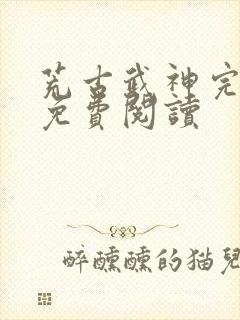 荒古武神完
免費閱讀
醉醺醺的猫兒